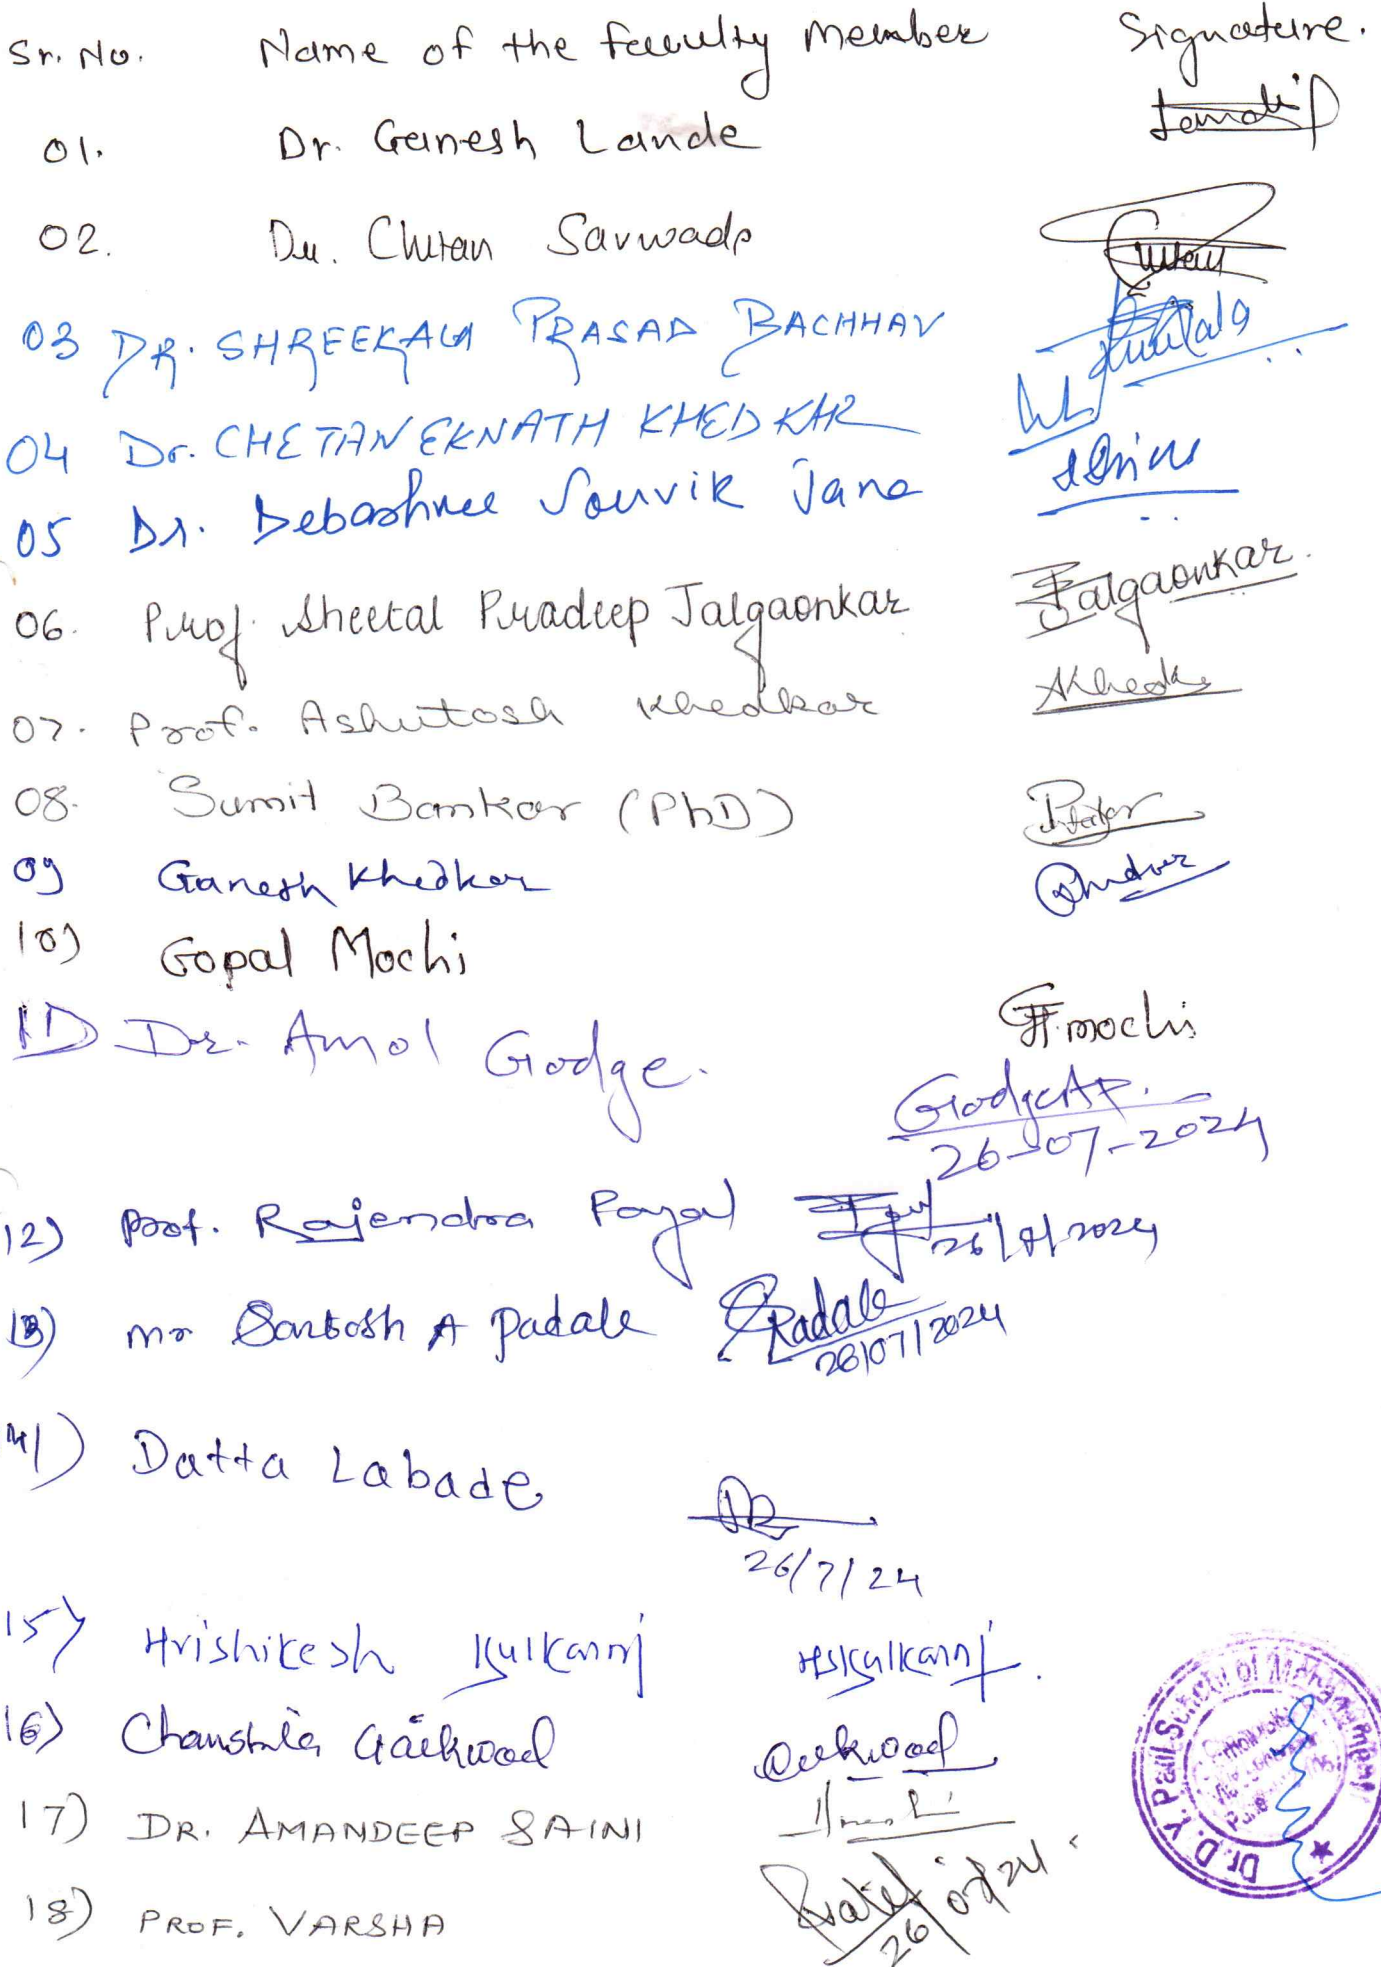 Sr. No. Name of the faculty Member Signature.
01. Dr. Ganesh Lande
02. Dr. Chetan Sarwade
03 DR. SHREEKALA PRASAD BACHHAV
04 Dr. CHETAN EKNATH KHEDKAR
05 Dr. Debashree Souvik Jana
06. Prof. Sheetal Pradeep Jalgaonkar Jalgaonkar.
07. Prof. Ashutosh Khedkar AKhedk
08. Sumit Bankar (PhD)
09 Ganesh Khedkar
10) Gopal Mochi
G.mochi
11) Dr. Amol Godge.
GodgeAP.
26-07-2024
12) Prof. Rajendra Payal 26/7/2024
13) mr Santosh A padale Padale
26/07/2024
14) Datta Labade
26/7/24
15) Hrishikesh Kulkarni HSKulkarni.
16) Gaikwad
17) DR. AMANDEEP SAINI
18) PROF. VARSHA
26/07/24
Dr. D. Y. Patil School of Management